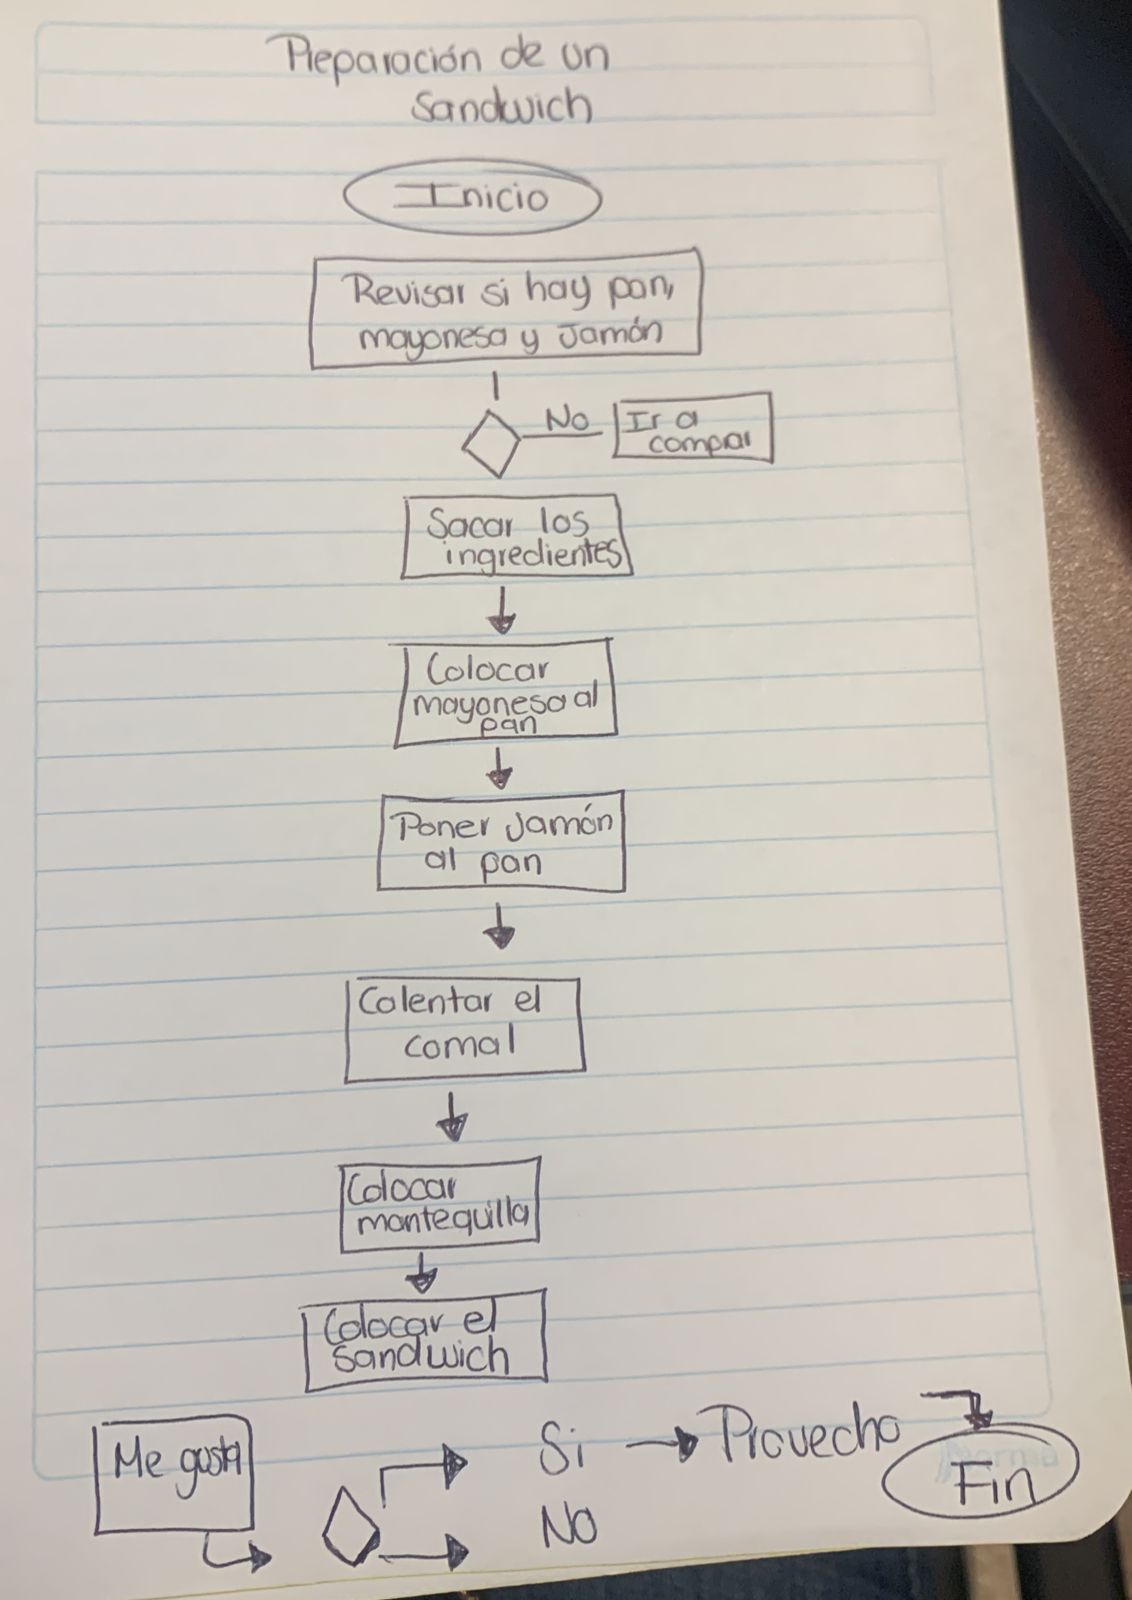 Preparación de un
Sandwich
Inicio
Revisar si hay pan,
mayonesa y Jamón
No
Ir a
comprar
Sacar los
ingredientes
Colocar
mayonesa al
pan
Poner Jamón
al pan
Calentar el
comal
Colocar
mantequilla
Colocar el
sandwich
Me gusta
Si
Provecho
Fin
NO